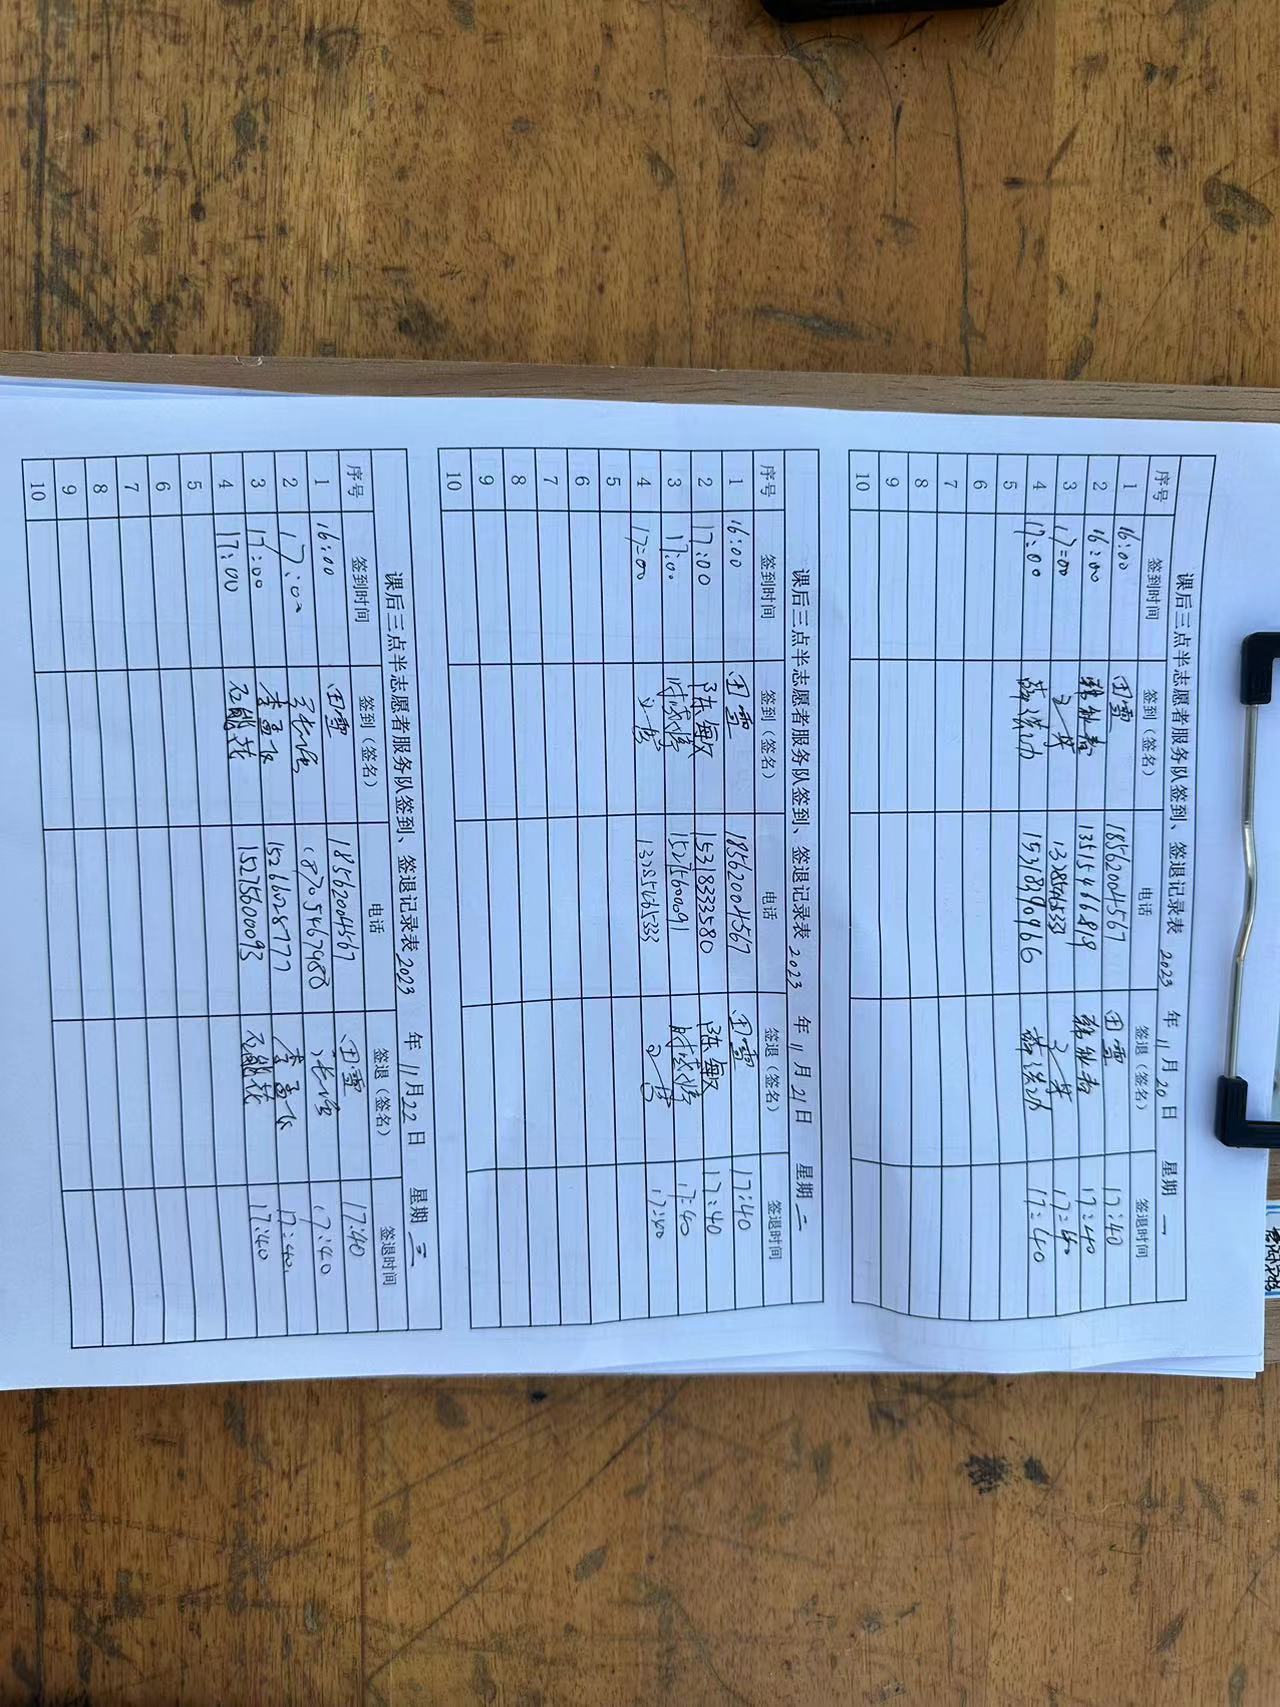 课后三点半志愿者服务队签到、签退记录表 2023 年 11 月 20 日 星期 一
序号 签到时间 签到（签名） 电话 签退（签名） 签退时间
1 16:00 田雪 18562004567 田雪 17:40
2 16:00 13515466819 17:40
3 17:00 13285465333 17:40
4 17:00 15318390966 17:40
5
6
7
8
9
10
课后三点半志愿者服务队签到、签退记录表 2023 年 11 月 21 日 星期 二
序号 签到时间 签到（签名） 电话 签退（签名） 签退时间
1 16:00 田雪 18562004567 田雪 17:40
2 17:00 陈敏 15318333580 陈敏 17:40
3 17:00 15275600091 17:40
4 17:00 13285465333 17:40
5
6
7
8
9
10
课后三点半志愿者服务队签到、签退记录表 2023 年 11 月 22 日 星期 三
序号 签到时间 签到（签名） 电话 签退（签名） 签退时间
1 16:00 田雪 18562004567 田雪 17:40
2 17:00 18705467988 17:40
3 17:00 15266028777 17:40
4 17:00 15275600093 17:40
5
6
7
8
9
10